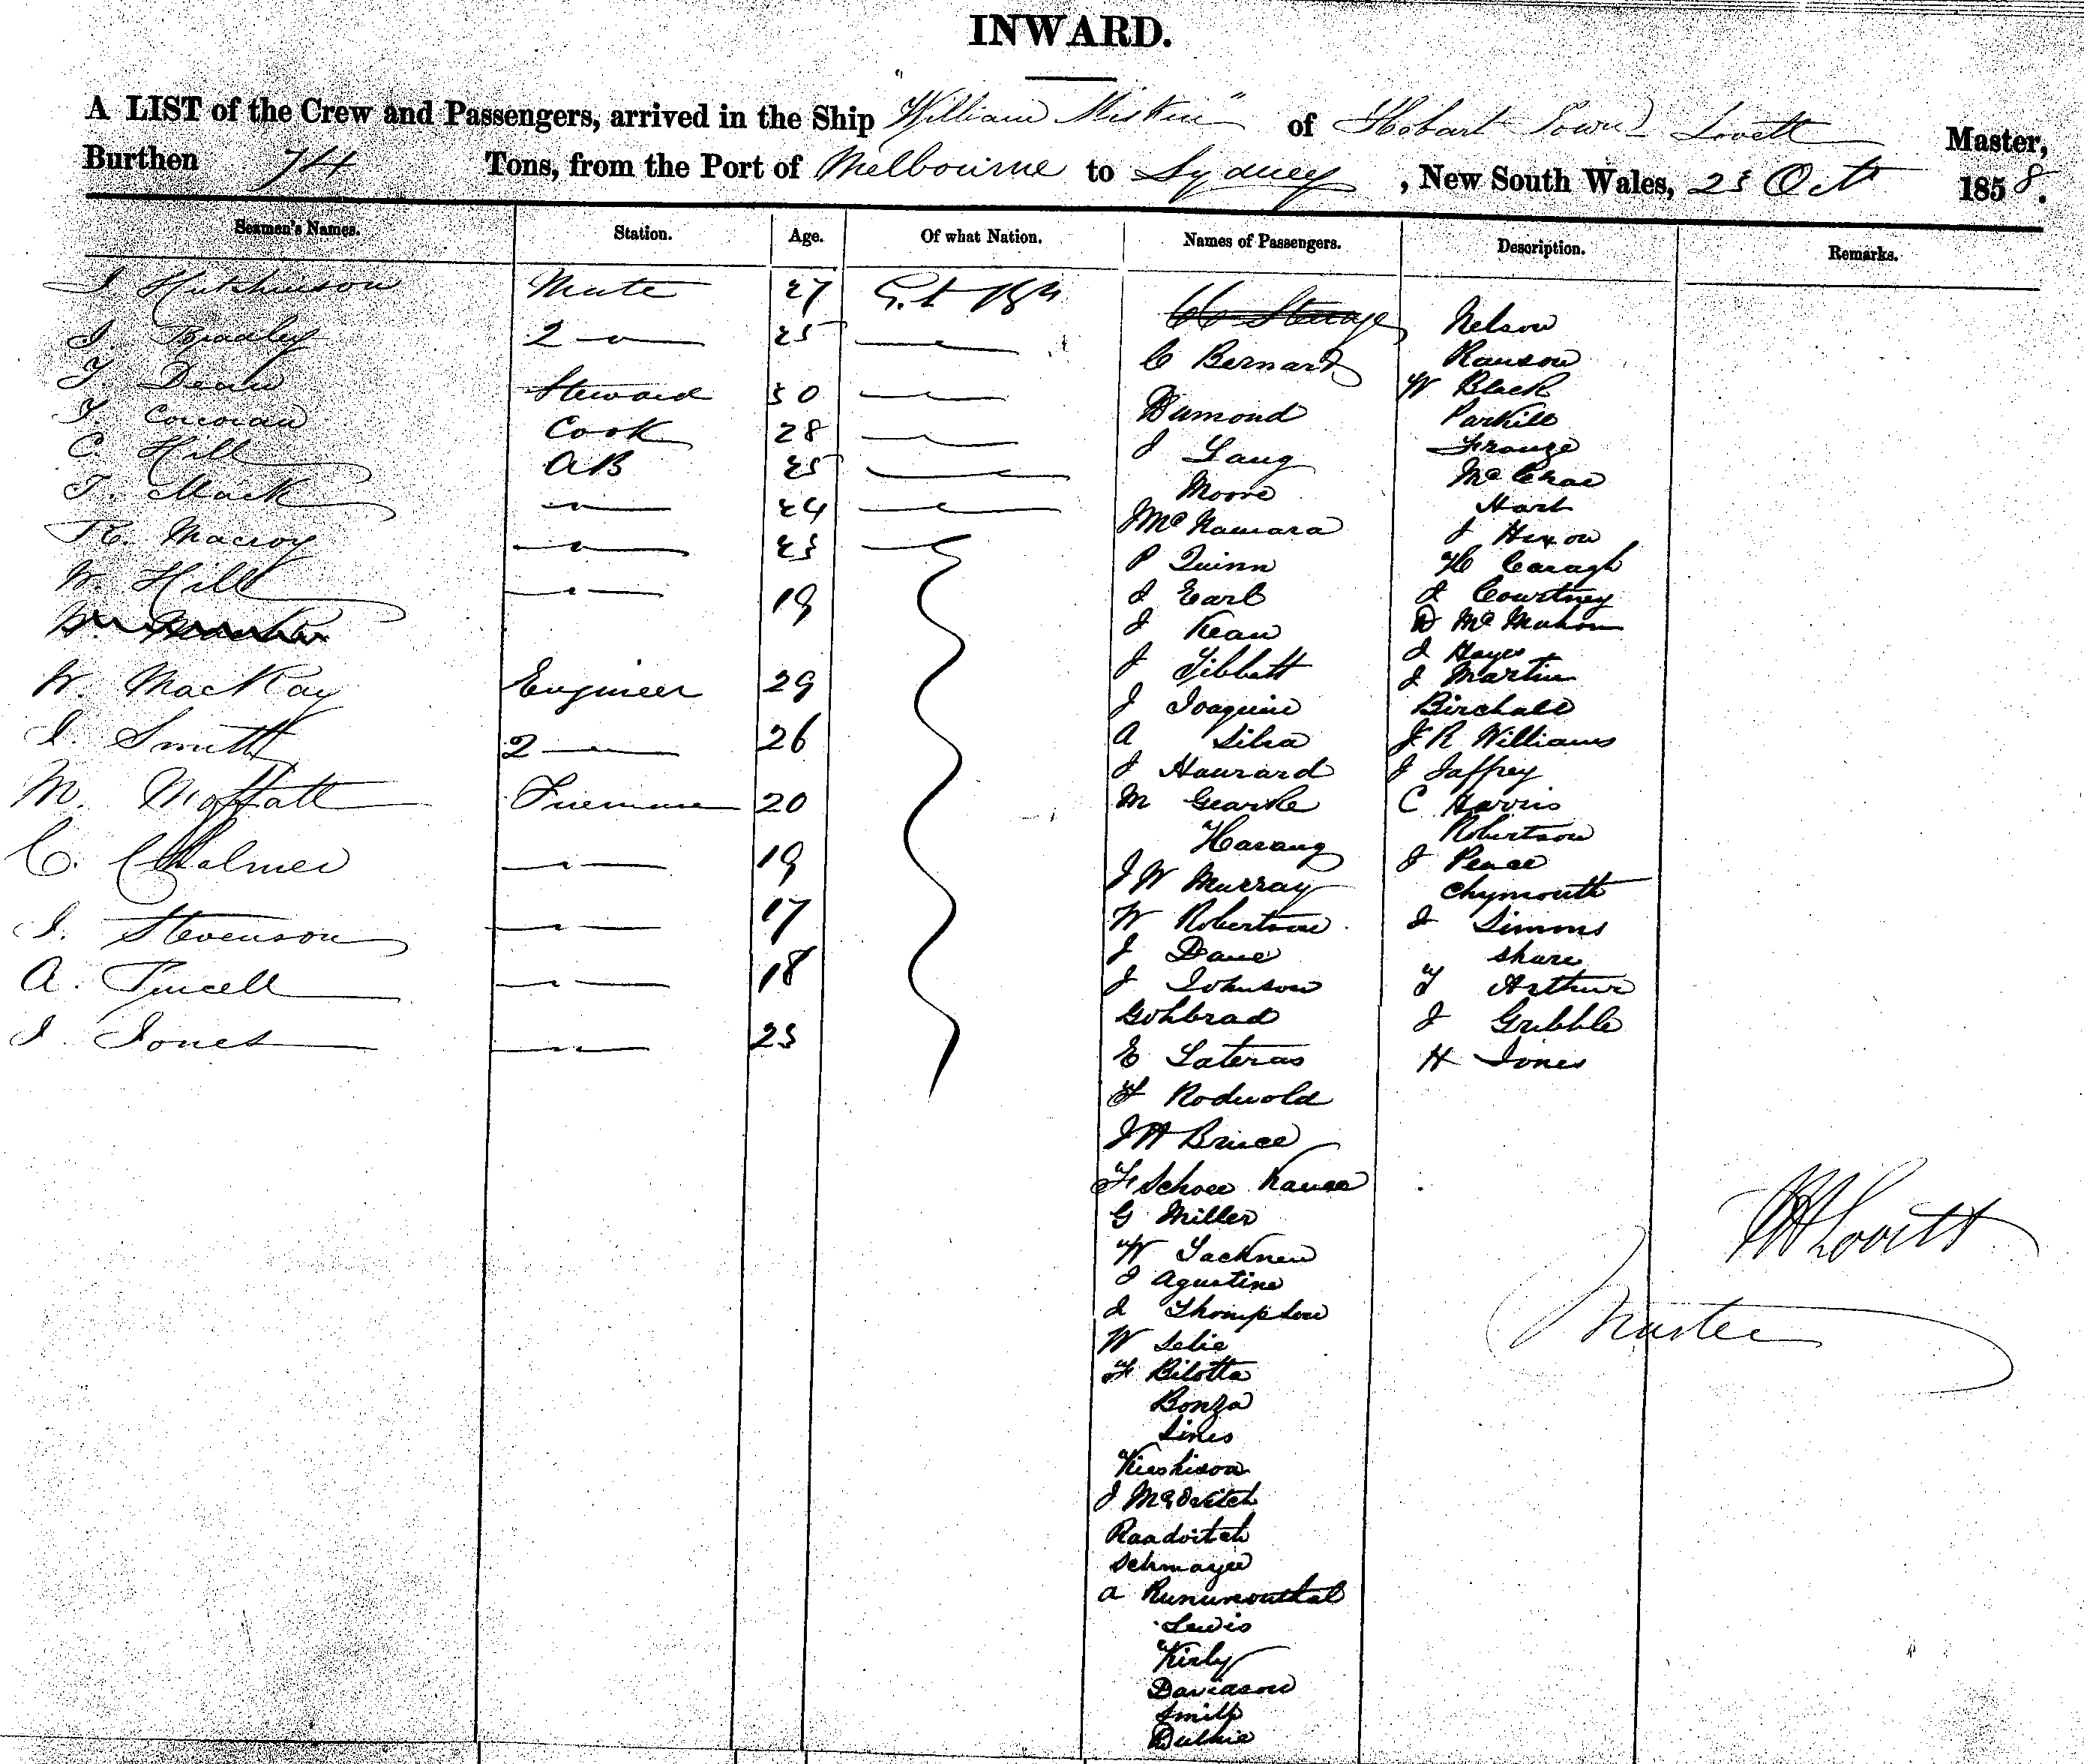 INWARD.
A LIST of the Crew and Passengers, arrived in the Ship "William Miskin" of Hobart Town Lovett Master,
Burthen 74 Tons, from the Port of Melbourne to Sydney, New South Wales, 23 Oct 1858.
Seamen's Names. Station. Age. Of what Nation. Names of Passengers. Description. Remarks.
J. Hutchinson Mate 27
J. Bradley 2 25
T. Dean Steward 30
T. Corcoran Cook 28
C. Hill AB 25
T. Mack 24
R. Macroy 23
W. Hill 19
W. MacKay Engineer 29
J. Smith 2 26
M. Moffatt Fireman 20
C. Chalmer 19
J. Stevenson 17
A. Purcell 18
J. Jones 23
C Bernard
Dumond
J Lang
Moore
J McNamara
P Quinn
J Earl
J Kean
J Tibbett
J Joaquin
A Silva
J Haurard
M Gearke
Harang
J W Murray
W Robertson
J Dane
J Johnson
Gohbrad
E Lateras
F Rodwold
J H Bruce
F Schoee
G Miller
W Lacknen
J Agustine
J Thompson
W Selie
F Bilotta
Bonza
Sines
Raadvitch
Schmayer
A
Lewis
Kirby
Davidson
Smith
Duthie
Nelson
Ranson
W Black
Parkill
Franze
McCrae
Hart
J Hixon
H Caragh
J Courtney
D McMahon
J Hayes
J Martin
Birchall
J R Williams
J Jaffrey
C Harris
Robertson
J Pearce
Chymouth
J Simms
Share
T Arthur
J Gribble
H Jones
Lovett
Master